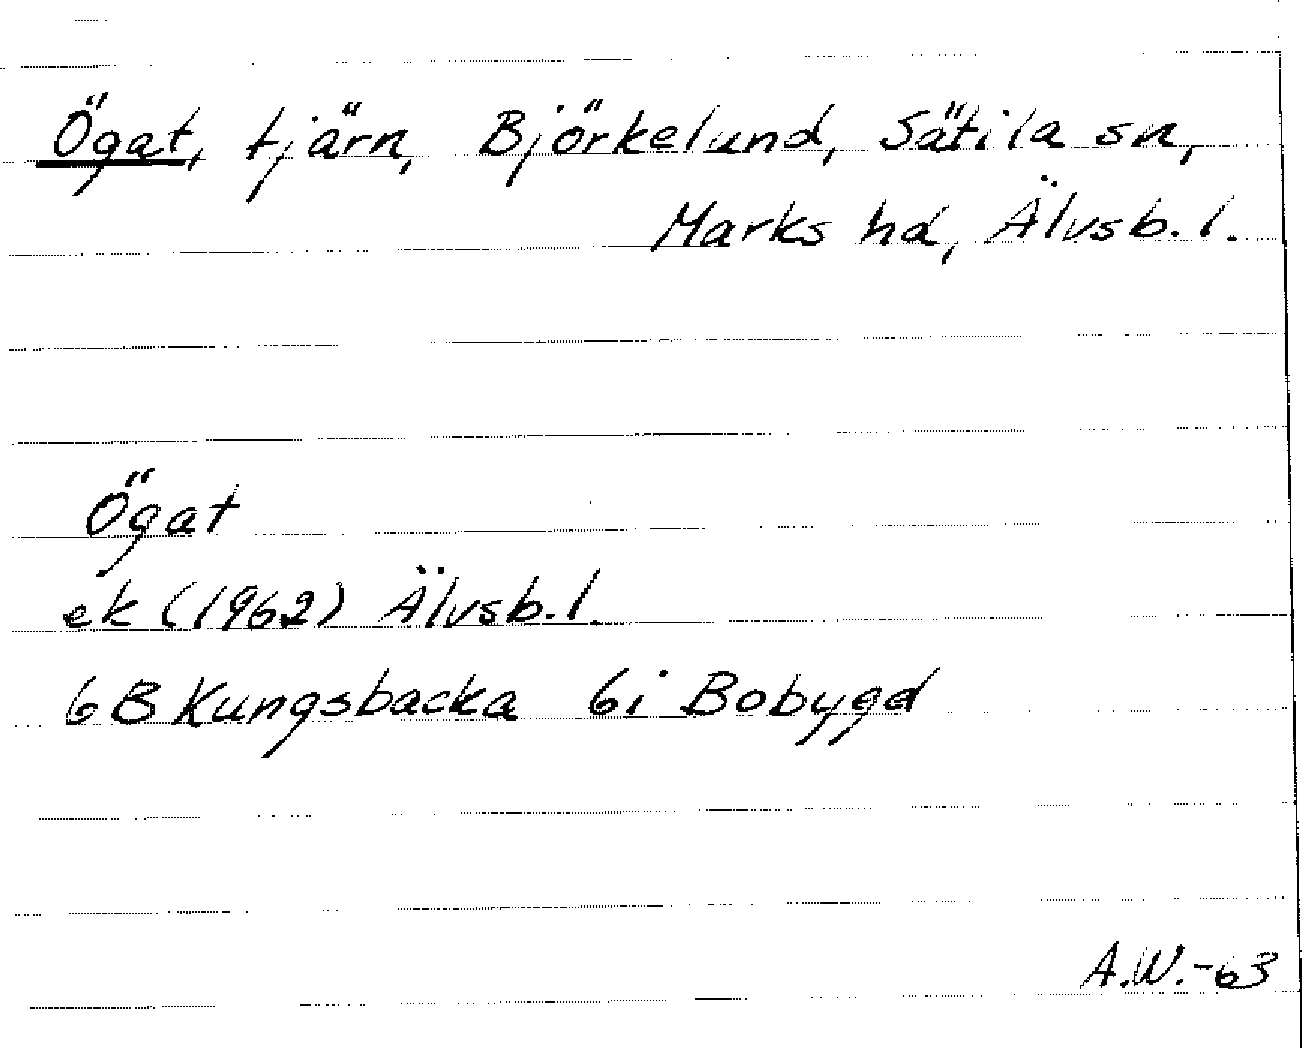 Ögat, tjärn, Björkelund, Sätila sn,
Marks hd, Älvsb. l.
Ögat
ek (1962) Älvsb. l.
6B Kungsbacka 6i Bobygd
A.W.-63